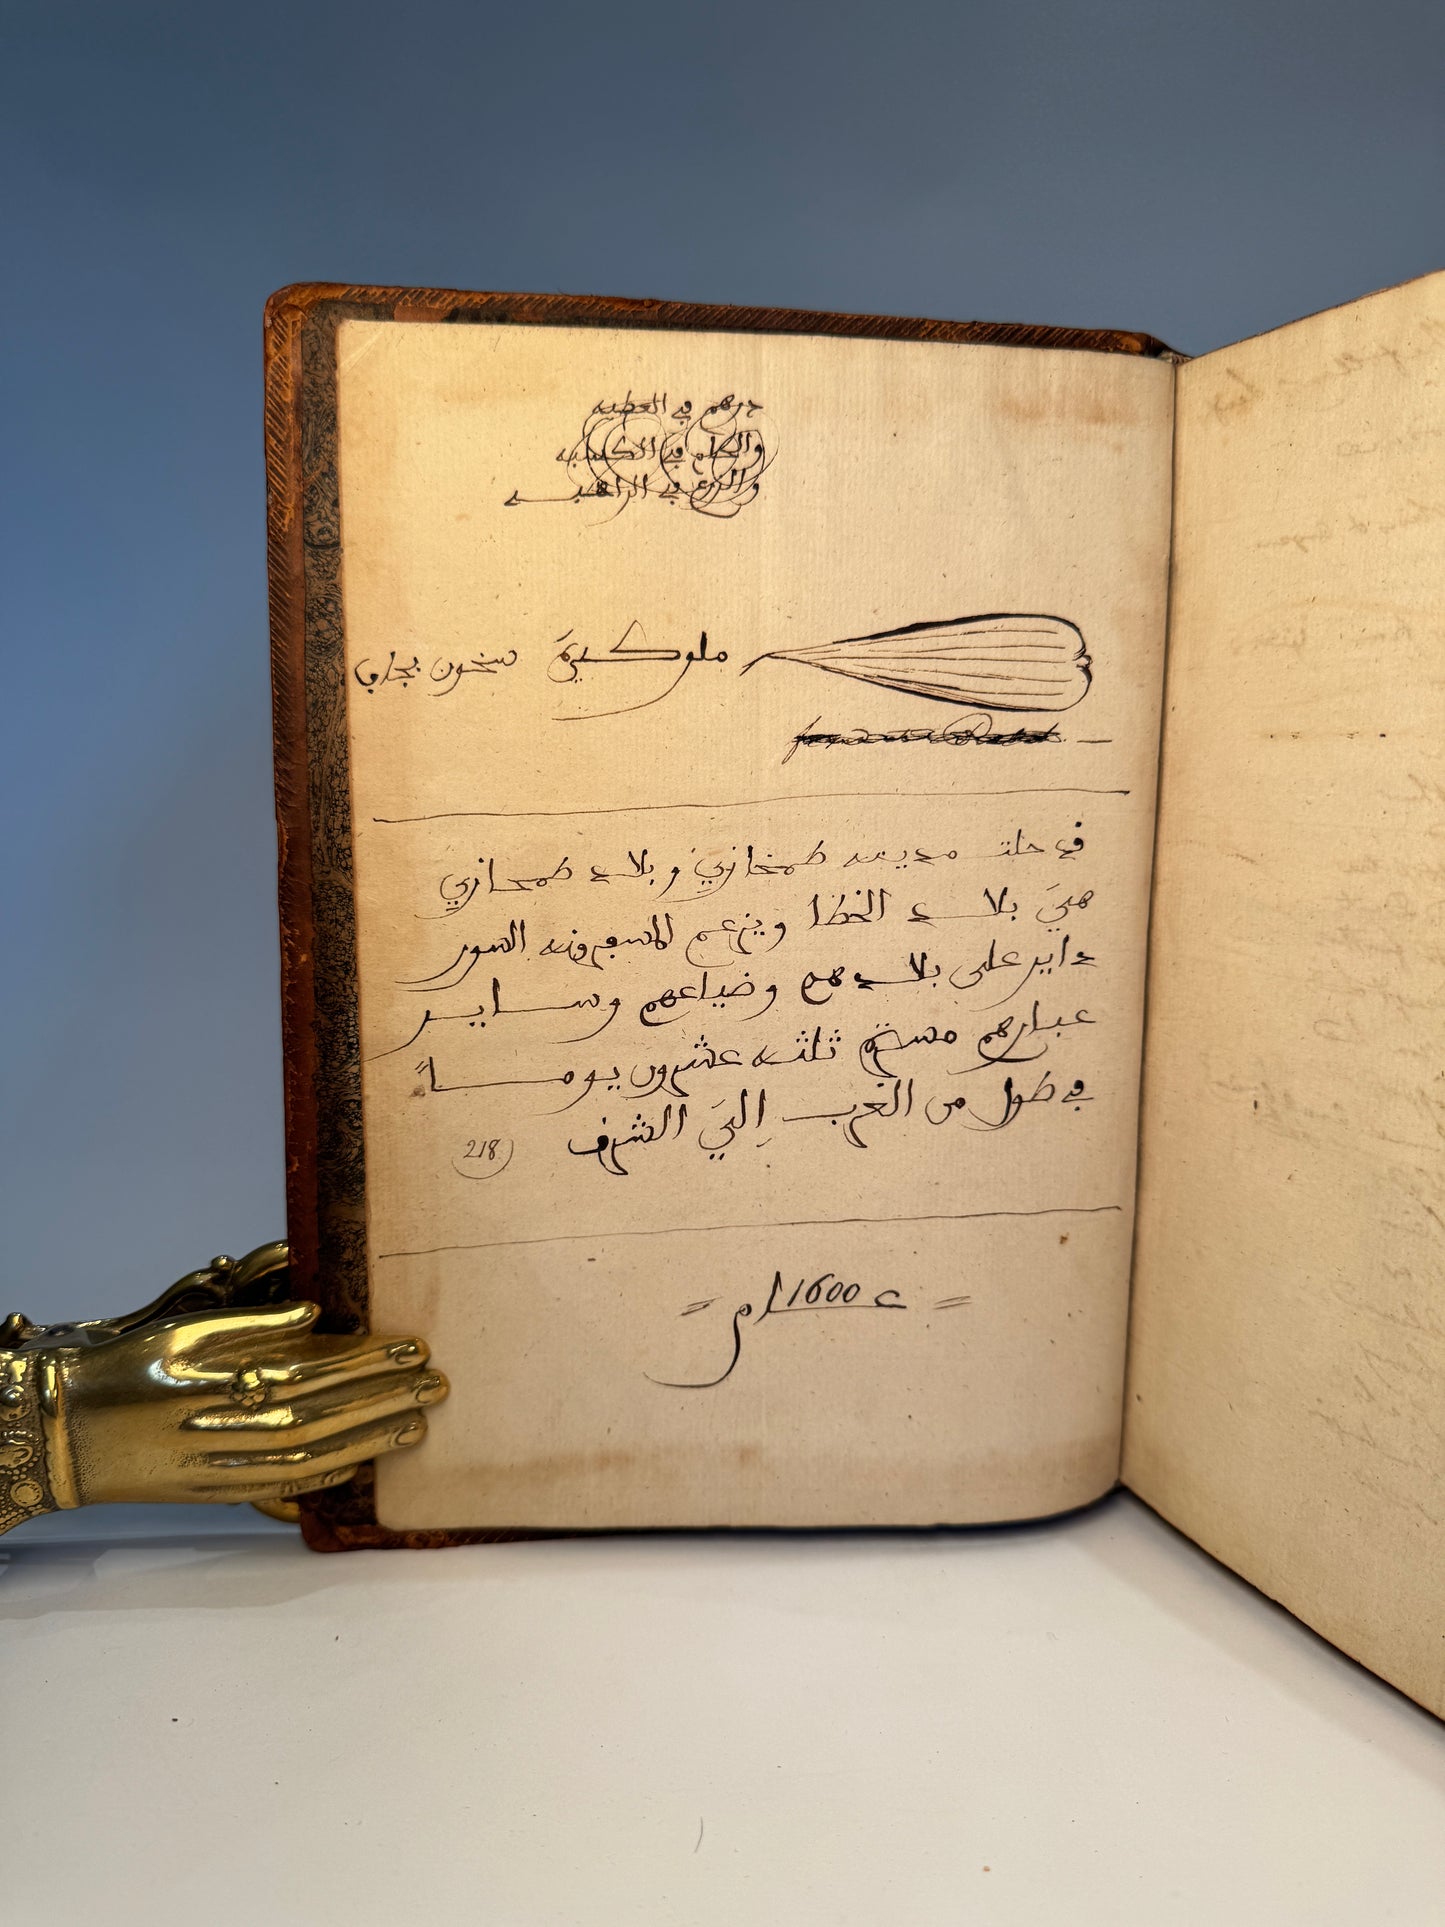 درهم في العطيه
والكلم في الكسبه
في الراهبه
ملوكية سخون
في حلت مدينه طمخازي وبلاد طمحازي
هيَ بلاد الخطا ويزعم السور
داير على بلادهم وضياعهم وساير
ثلثه عشرون يوماً
في طول من الغرب إليَ الشرق
218
عام 1600